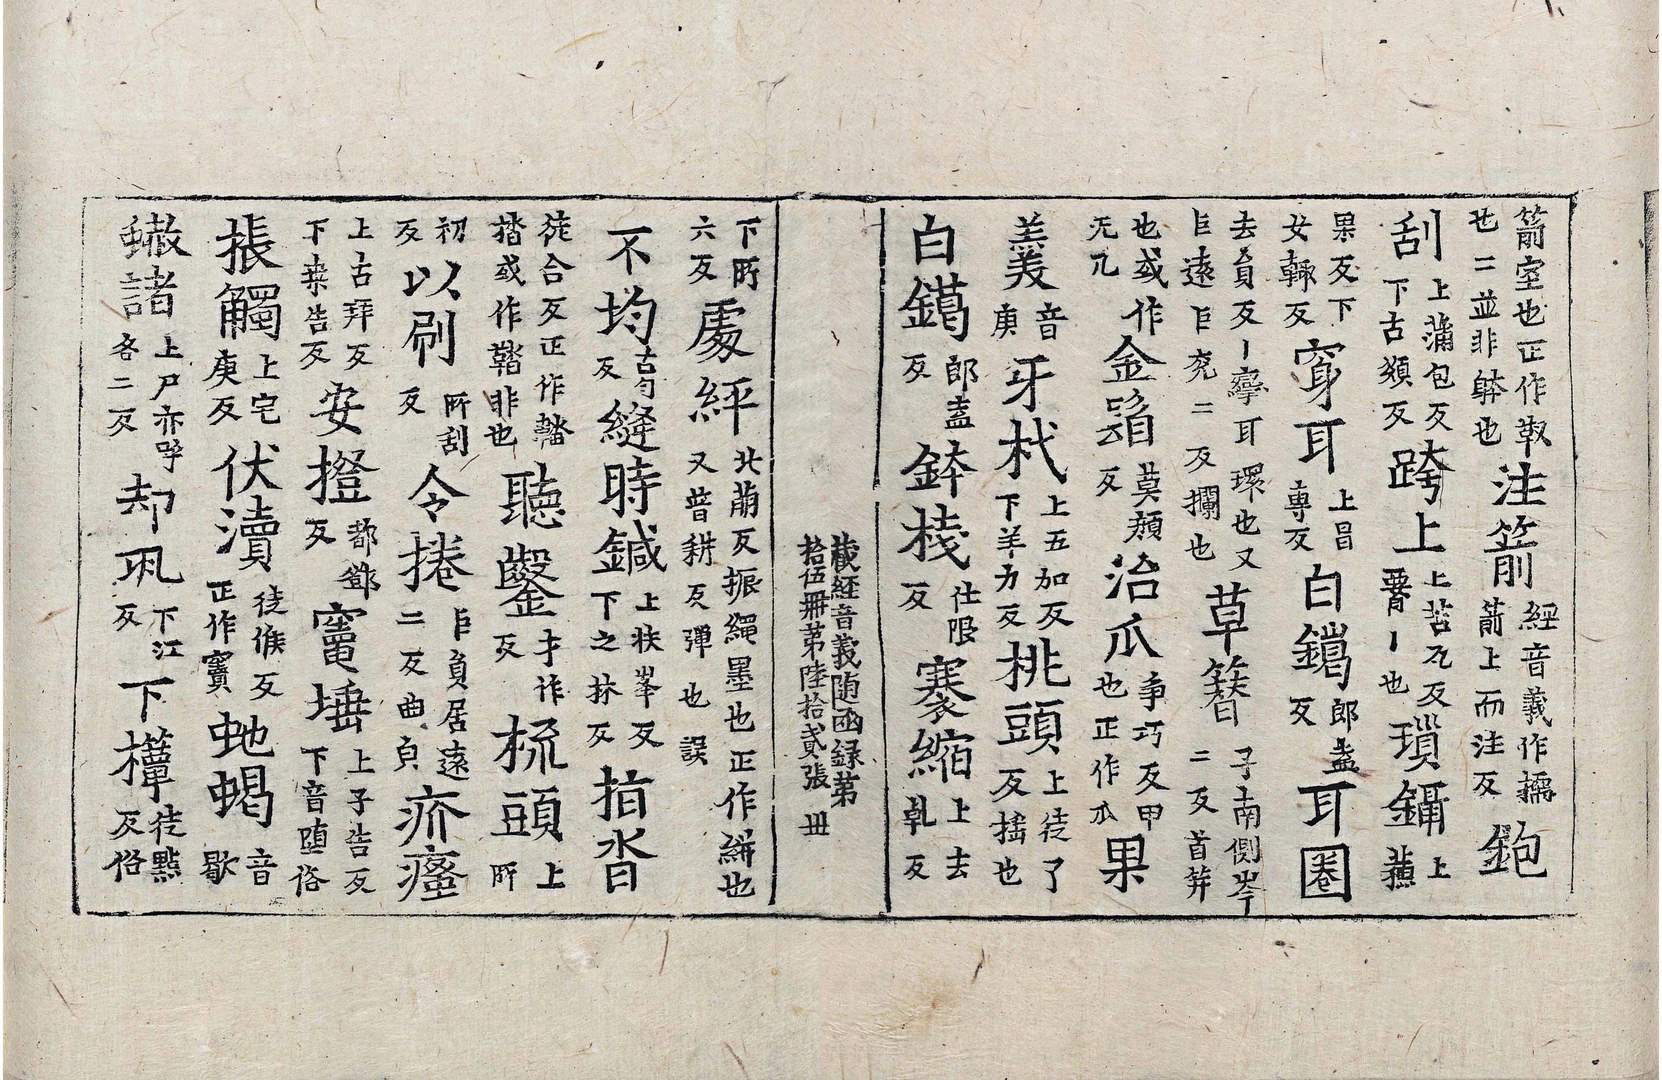 箭室也正作靫注箭經音義作𢹂箭上而注反鉋
也二並非躰也
刮上蒲包反下古頒反跨上上苦瓜反䯊丨也瑣鑷上蘓
果反下女輙反穿耳上昌專反白鑞郎盍反耳圈
去負反丨孿耳環也又巨遠巨兖二反攔也草簪子南側岑二反首笄
也或作无兀金㿱莫顏反治爪爭巧反甲也正作爪果
羙音庚牙杙上五加反下羊力反桃頭上徒了反搖也
白鑞郎盍反鉢棧仕限反褰縮上去乹反
藏經音義随函録第拾伍冊第陸拾貳張 冊
下所六反處絣北萠反振繩墨也正作絣也又普耕反彈也誤
不均古勻反縫時鍼上扶峯反下之林反揩沓
徒合反正作䵬䠛或作鞜非也聽鑿才作反梳頭上所
初反以刷所刮反令捲巨負居遠二反曲負疥癗
上古拜反下桒告反安撜都鄧反竈埵上子告反下音堕俗
掁觸上宅庚反伏瀆徒侯反正作竇虵蝎音歇
𧑅諸上尸亦呼各二反却瓨下江反下橝徒㸃反俗